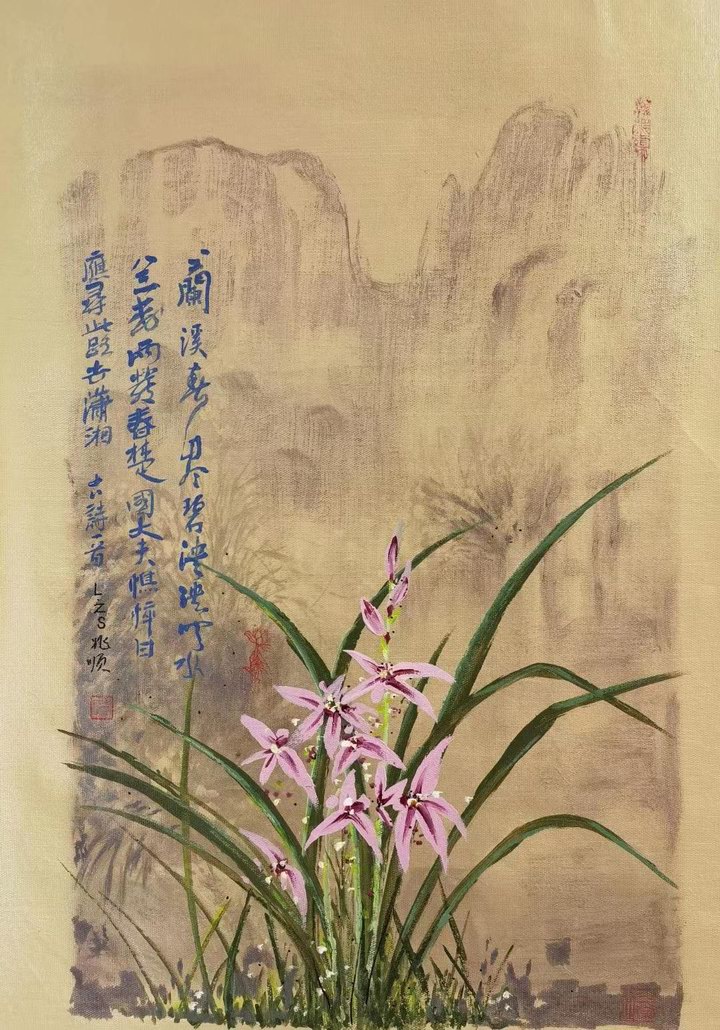 蘭溪春尽碧泱泱映水
兰花雨發香楚國大夫憔悴日
應尋此路去瀟湘 古詩一首 L之S